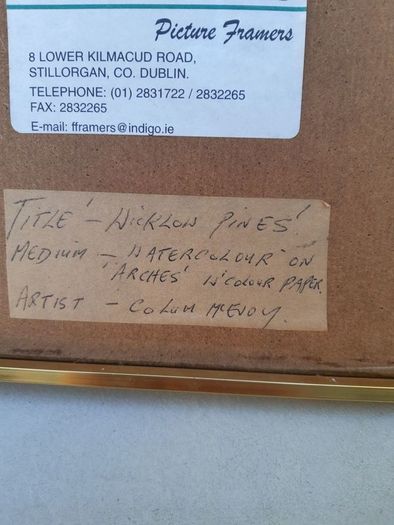 Picture Framers
8 LOWER KILMACUD ROAD,
STILLORGAN, CO. DUBLIN.
TELEPHONE: (01) 2831722 / 2832265
FAX: 2832265
E-mail: fframers@indigo.ie
TITLE - 'WICKLOW PINES'.
MEDIUM - WATERCOLOUR ON
'ARCHES' W'COLOUR PAPER.
ARTIST - COLUM McEVOY.